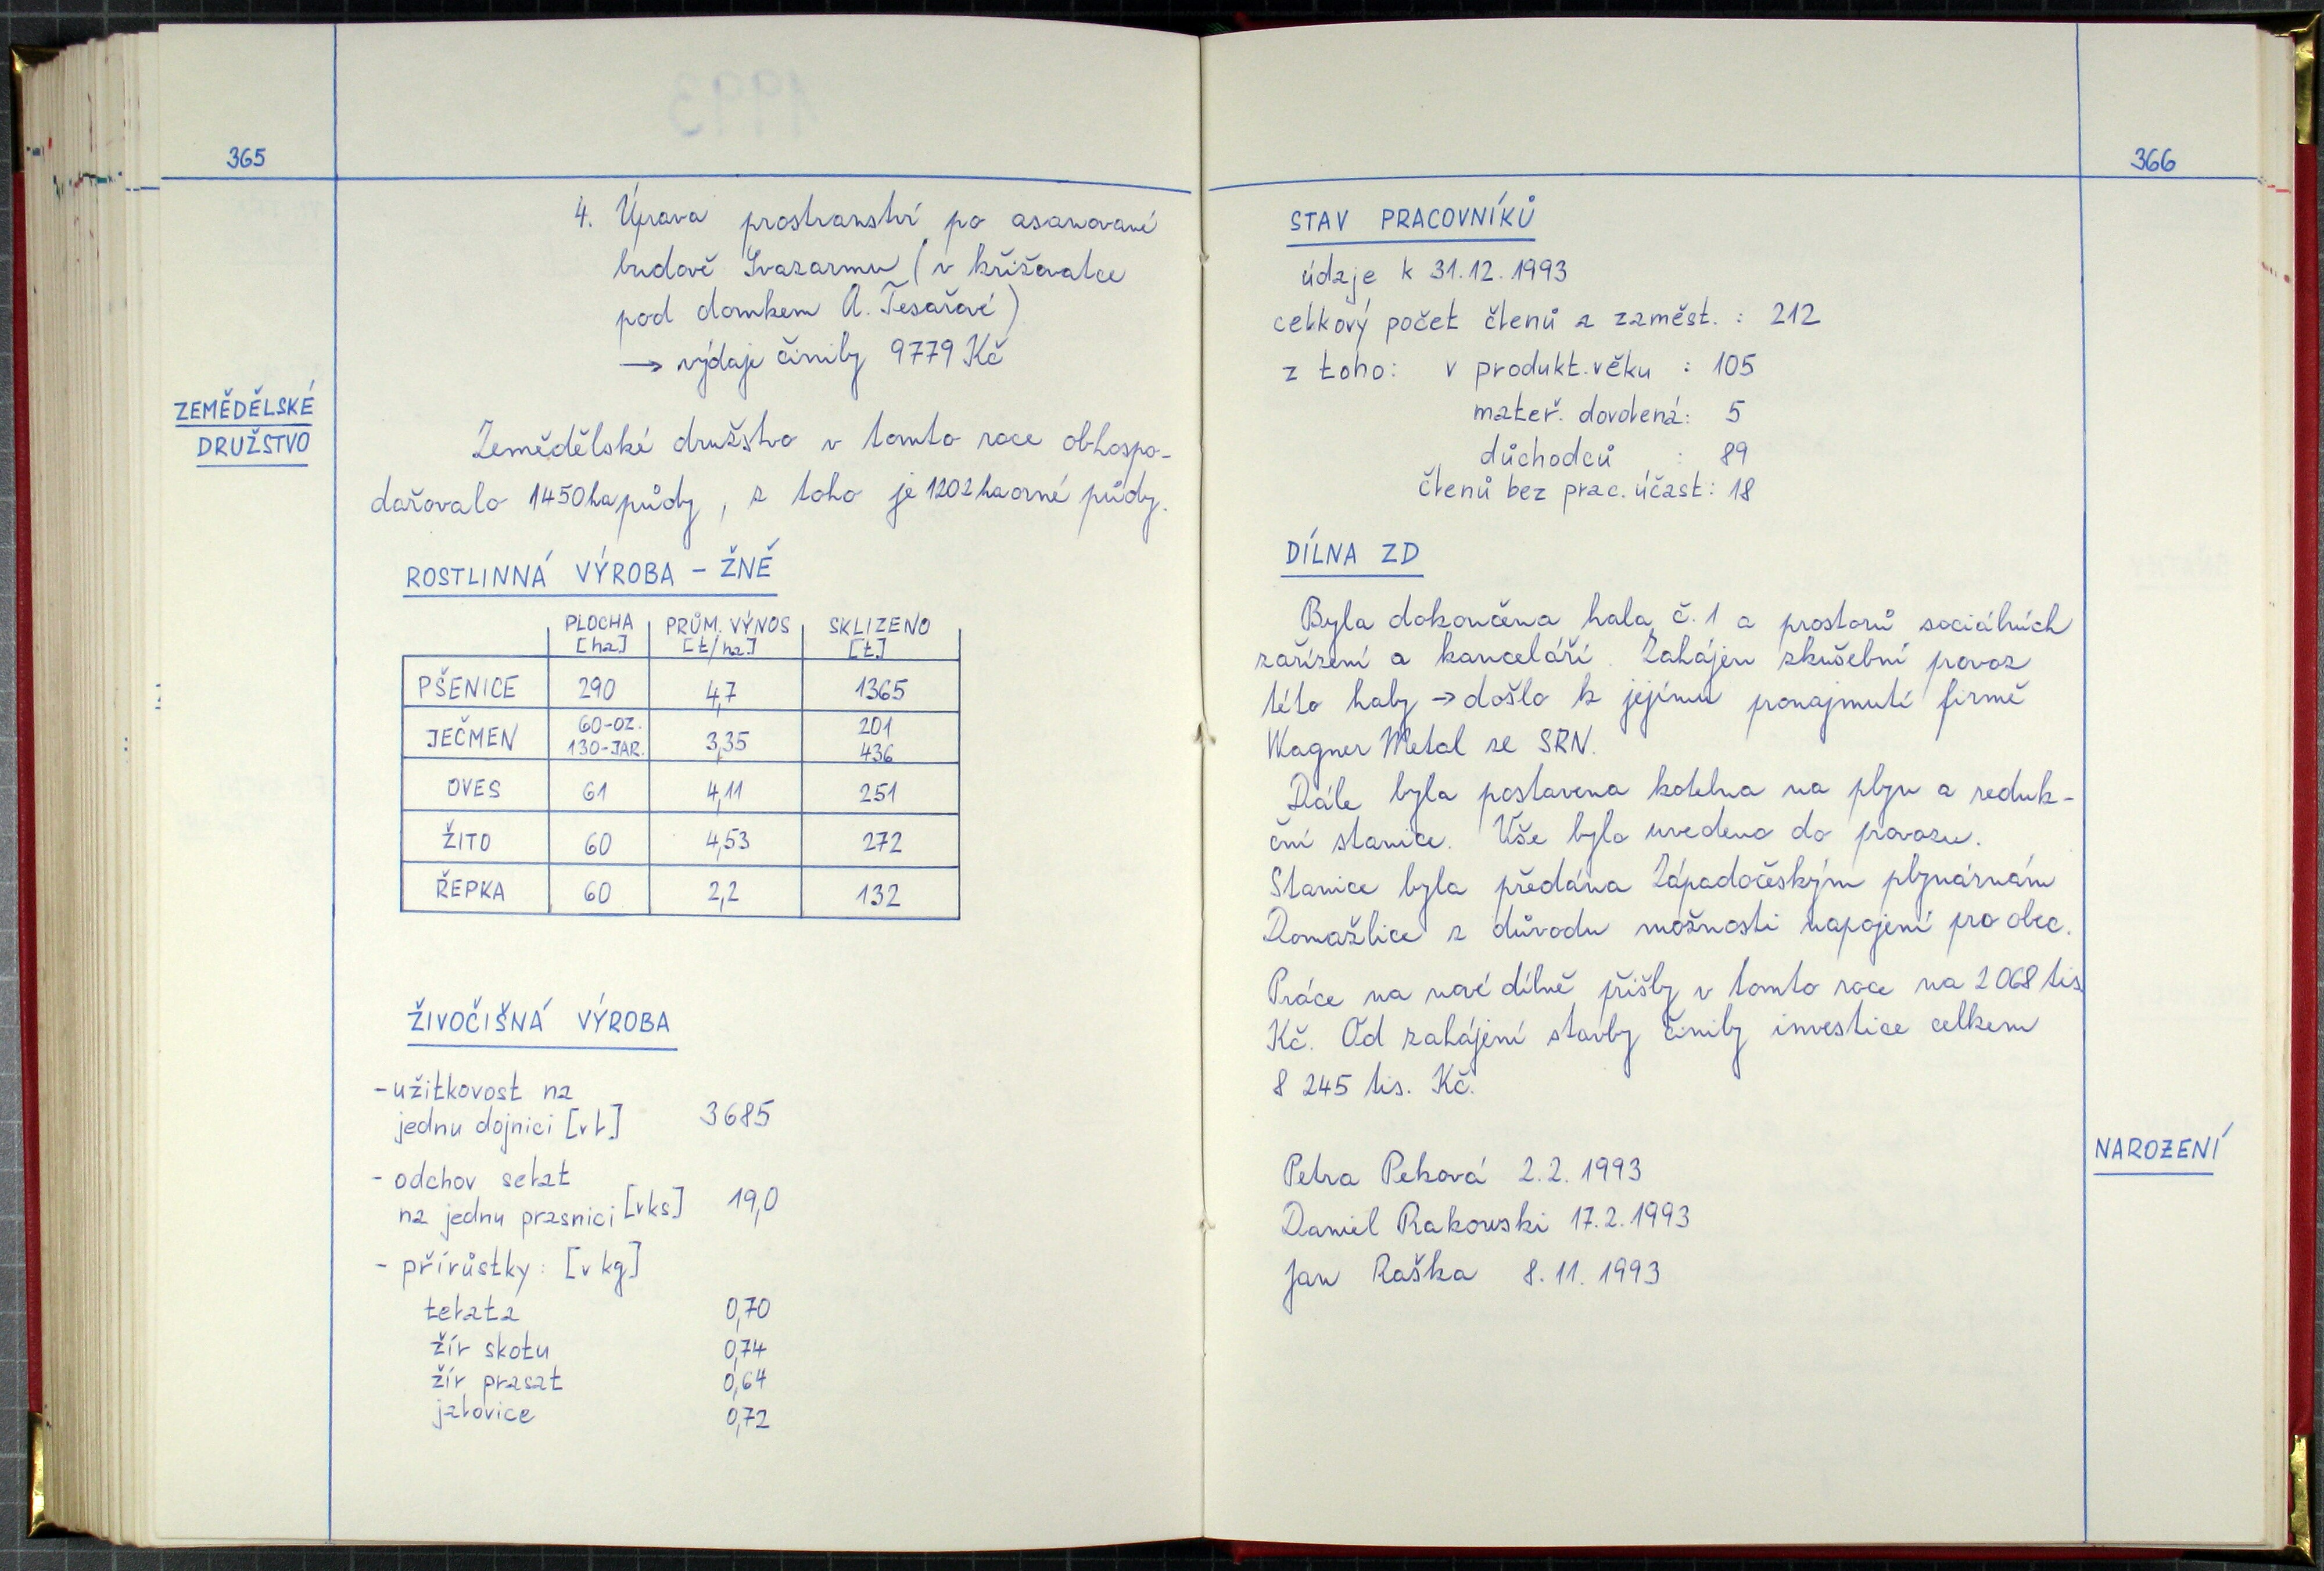 365
4. Úprava prostranství po asanované
budově Svazarmu (v křižovatce
pod domkem A. Tesařové)
→ výdaje činily 9779 Kč
ZEMĚDĚLSKÉ
DRUŽSTVO
Zemědělské družstvo v tomto roce obhospo-
dařovalo 1450 ha půdy, z toho je 1202 ha orné půdy.
ROSTLINNÁ VÝROBA - ŽNĚ
PLOCHA [ha] PRŮM. VÝNOS [t/ha] SKLIZENO [t]
PŠENICE 290 4,7 1365
JEČMEN 60-OZ. 130-JAR. 3,35 201 436
OVES 61 4,11 251
ŽITO 60 4,53 272
ŘEPKA 60 2,2 132
ŽIVOČIŠNÁ VÝROBA
- užitkovost na
jednu dojnici [v l] 3685
- odchov selat
na jednu prasnici [v ks] 19,0
- přírůstky: [v kg]
telata 0,70
žír skotu 0,74
žír prasat 0,64
jalovice 0,72
366
STAV PRACOVNÍKŮ
údaje k 31.12.1993
celkový počet členů a zaměst. : 212
z toho: v produkt. věku : 105
mateř. dovolená: 5
důchodců : 89
členů bez prac. účast: 18
DÍLNA ZD
Byla dokončena hala č. 1 a prostorů sociálních
zařízení a kanceláří. Zahájen zkušební provoz
této haly → došlo k jejímu pronajmutí firmě
Wagner Metal ze SRN.
Dále byla postavena kotelna na plyn a reduk-
ční stanice. Vše bylo uvedeno do provozu.
Stanice byla předána Západočeským plynárnám
Domažlice z důvodu možnosti napojení pro obec.
Práce na nové dílně přišly v tomto roce na 2 068 tis
Kč. Od zahájení stavby činily investice celkem
8 245 tis. Kč.
NAROZENÍ
Petra Peková 2.2.1993
Daniel Rakowski 17.2.1993
Jan Raška 8.11.1993